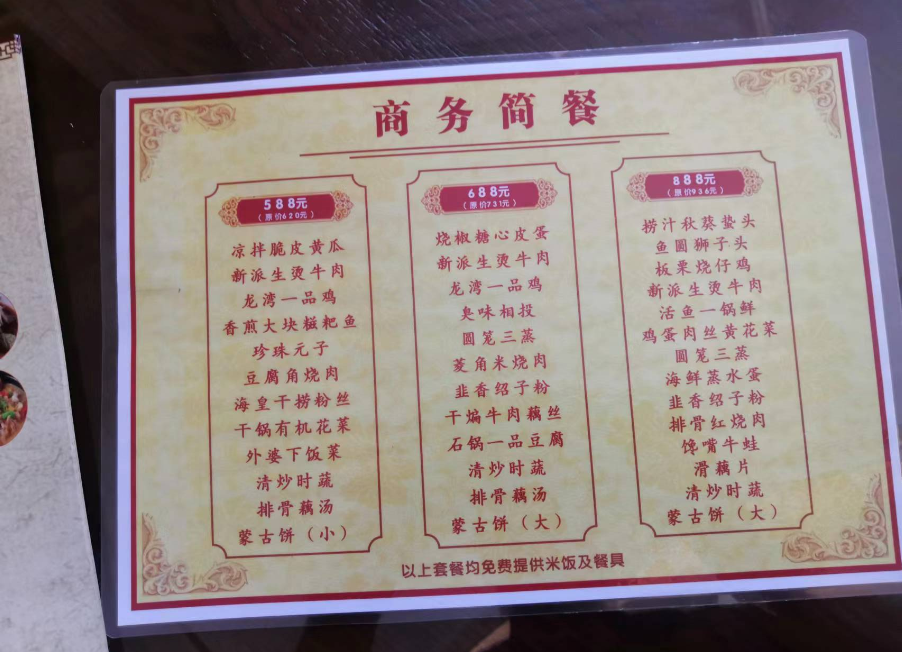 商务简餐
588元
（原价620元）
凉拌脆皮黄瓜
新派生烫牛肉
龙湾一品鸡
香煎大块糍粑鱼
珍珠元子
豆腐角烧肉
海皇干捞粉丝
干锅有机花菜
外婆下饭菜
清炒时蔬
排骨藕汤
蒙古饼（小）
688元
（原价731元）
烧椒糖心皮蛋
新派生烫牛肉
龙湾一品鸡
臭味相投
圆笼三蒸
菱角米烧肉
韭香绍子粉
干煸牛肉藕丝
石锅一品豆腐
清炒时蔬
排骨藕汤
蒙古饼（大）
888元
（原价936元）
捞汁秋葵垫头
鱼圆狮子头
板栗烧仔鸡
新派生烫牛肉
活鱼一锅鲜
鸡蛋肉丝黄花菜
圆笼三蒸
海鲜蒸水蛋
韭香绍子粉
排骨红烧肉
馋嘴牛蛙
滑藕片
清炒时蔬
蒙古饼（大）
以上套餐均免费提供米饭及餐具